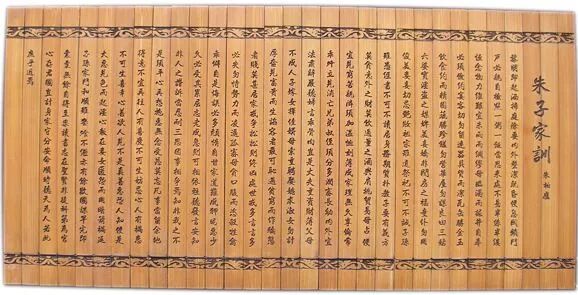 朱子家訓
朱柏廬
黎明即起灑掃庭除要內外整潔既昏便息關鎖門
戶必親自檢點一粥一飯當思來處不易半絲半縷
恆念物力維艱宜未雨而綢繆毋臨渴而掘井自奉
必須儉約宴客切勿留連器具質而潔瓦缶勝金玉
飲食約而精園蔬勝珍饈勿營華屋勿謀良田三姑
六婆實淫盜之媒婢美妾嬌非閨房之福童仆勿用
俊美妻妾切忌艷妝祖宗雖遠祭祀不可不誠子孫
雖愚經書不可不讀居身務期質樸教子要有義方
莫貪意外之財莫飲過量之酒與肩挑貿易毋占便
宜見窮苦親鄰須加溫恤刻薄成家理無久享倫常
乖舛立見消亡兄弟叔侄須分多潤寡長幼內外宜
法肅辭嚴聽婦言乖骨肉豈是丈夫重資財薄父母
不成人子嫁女擇佳婿毋索重聘娶媳求淑女勿計
厚奩見富貴而生諂容者最可恥遇貧窮而作驕態
者賤莫甚居家戒爭訟訟則終凶處世戒多言言多
必失勿恃勢力而凌逼孤寡毋貪口腹而恣殺牲禽
乖僻自是悔誤必多頹惰自甘家道難成狎昵惡少
久必受其累屈志老成急則可相依輕聽發言安知
非人之譖訴當忍耐三思因事相爭焉知非我之不
是須平心再想施惠無念受恩莫忘凡事當留餘地
得意不宜再往人有喜慶不可生妒忌心人有禍患
不可生喜幸心善欲人見不是真善惡恐人知便是
大惡見色而起淫心報在妻女匿怨而用暗箭禍延
子孫家門和順雖饔飧不繼亦有餘歡國課早完即
囊橐無餘自得至樂讀書志在聖賢非徒科第為官
心存君國豈計身家守分安命順時聽天為人若此
庶乎近焉